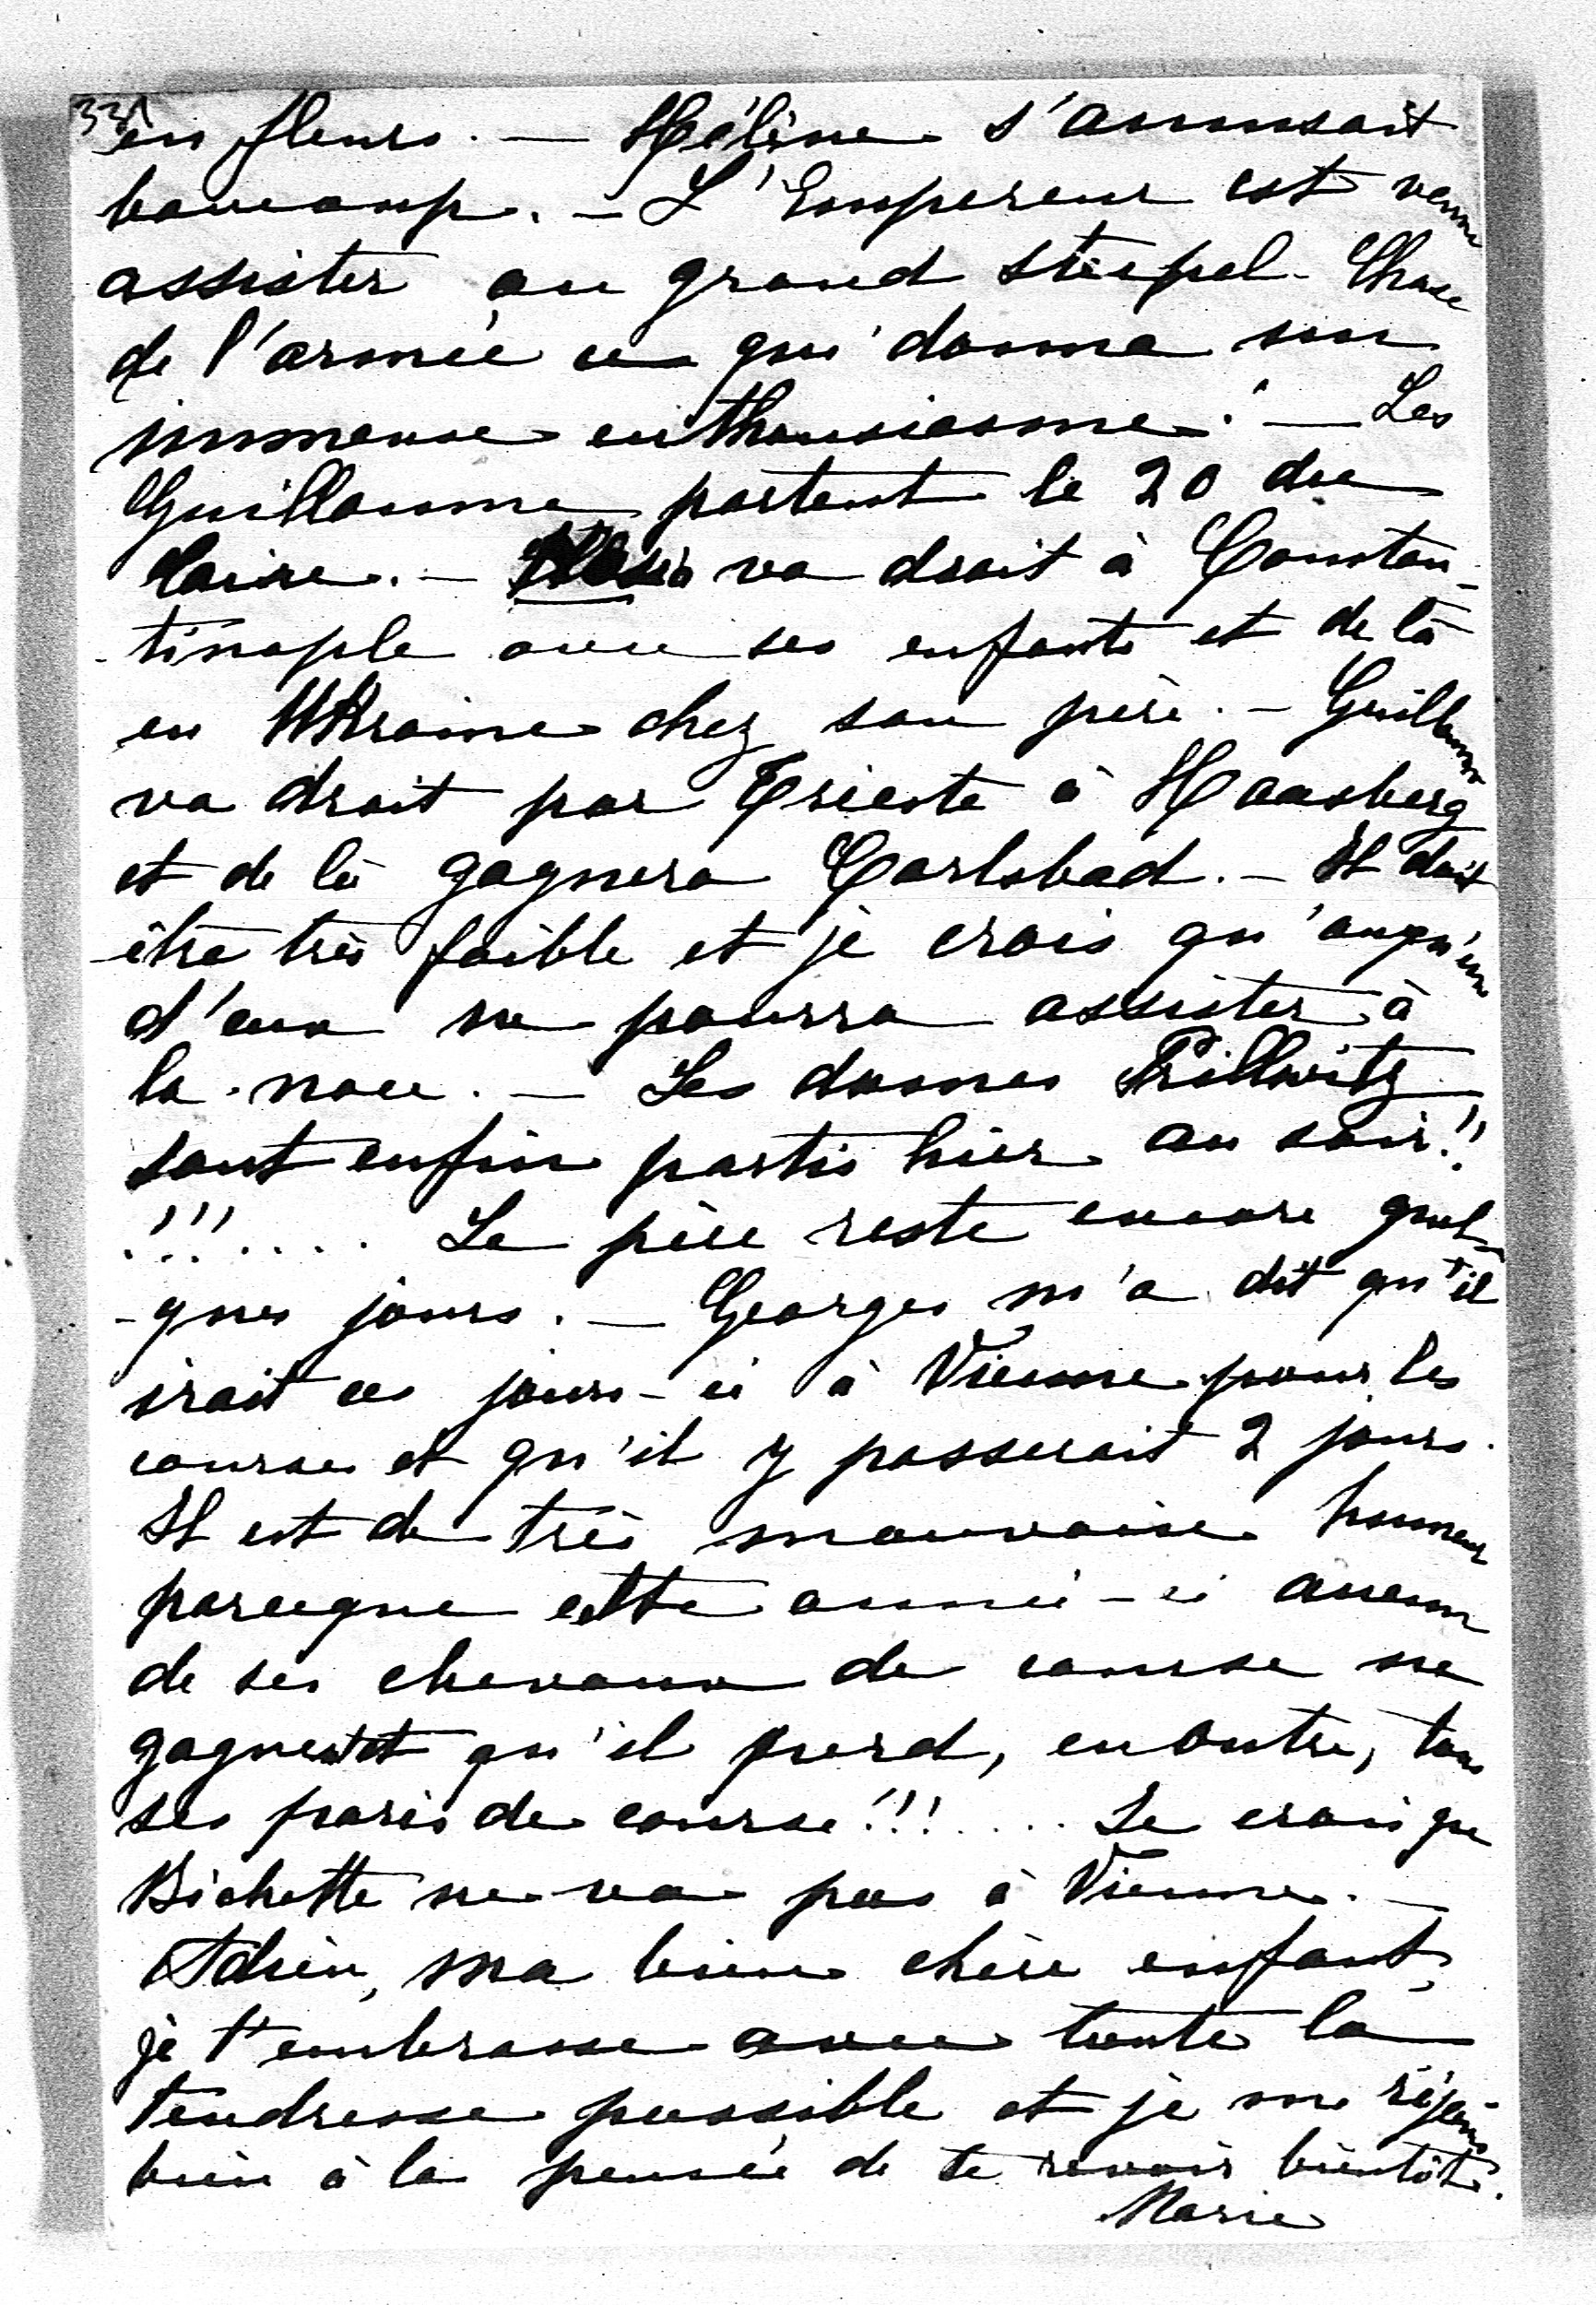 331
en fleurs. — Hélène s'amusait
beaucoup. — L'Empereur est venu
assister au grand steepel-Chase
de l'armée ce qui donna un
immense enthousiasme. — Les
Guillaume partent le 20 du
Caire. — va droit à Constan-
-tinople avec ses enfants et de là
en Ukraine chez son père. — Guillaume
va droit par Trieste à Haasberg
et de là gagnera Carlsbad. — Il doit
être très faible et je crois qu'
d'eux ne pourra assister à
la noce. — Les dames Prillwitz
sont enfin partis hier au soir!!
!!!.... Le père reste encore quel-
-ques jours. — Georges m'a dit qu'il
irait ces jours-ci à Vienne pour les
courses et qu'il y passerait 2 jours.
Il est de très mauvaise humeur
parceque cette année-ci aucun
de ses chevaux de course ne
gagne et qu'il perd, en outre, tous
ses paris de course!!!.... Je crois que
Bichette ne va pas à Vienne. —
Adieu, ma bien chère enfant,
je t'embrasse avec toute la
tendresse possible et je me réjouis
bien à la pensée de te revoir bientôt.
Marie